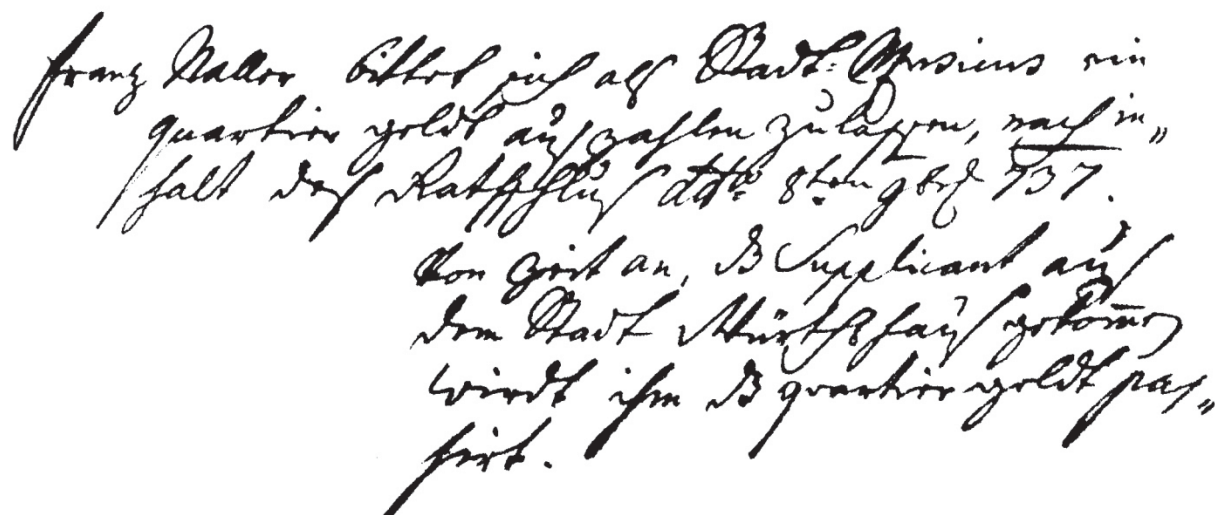 Franz Naller bittet sich als Stadt-Musicus ein
quartier geldt auszahlen zulassen, nach in„
halt des Rathsschlus ddto 8ten 9bris 737.
Von Zeit an, dß Supplicant aus
dem Stadt Würthshaus gekom̄en
wirdt ihm dß quartier geldt pas„
sirt.